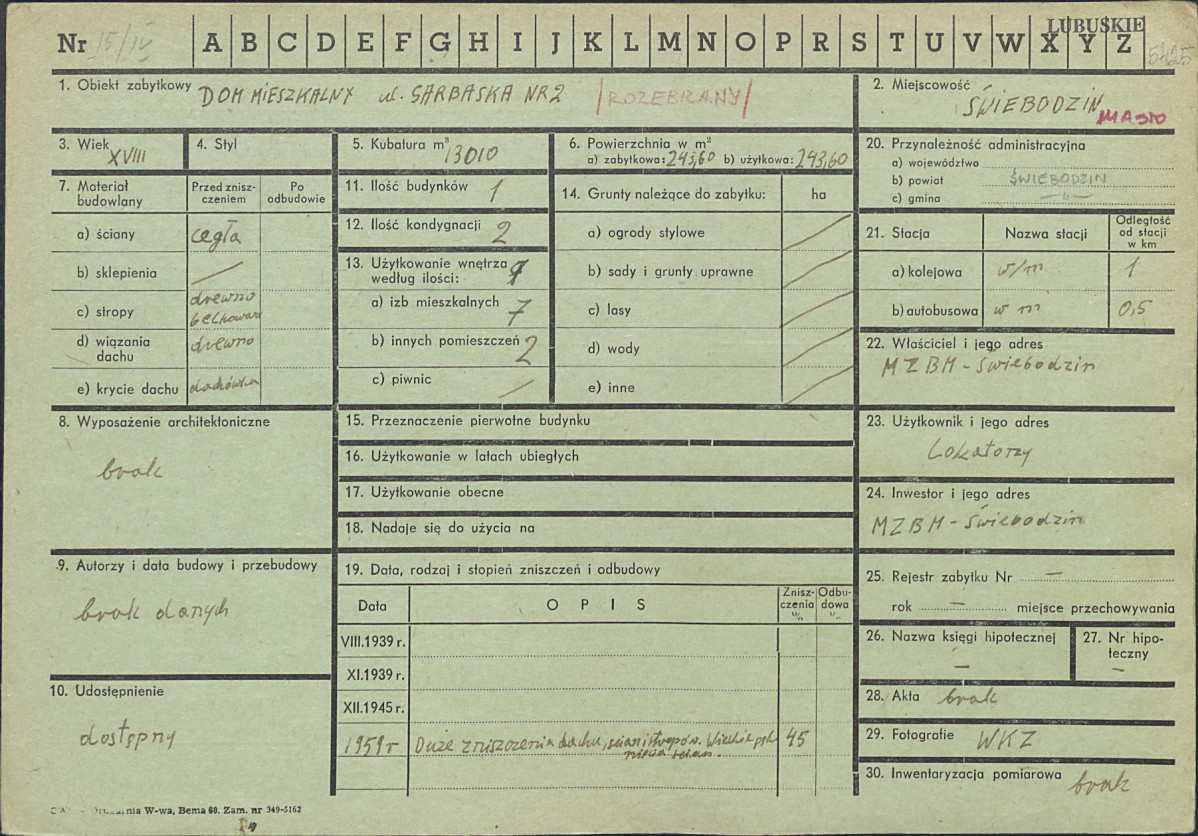 Nr 15/IV A B C D E F G H I J K L M N O P R S T U V W X Y Z
LUBUSKIE
5425
1. Obiekt zabytkowy DOM MIESZKALNY ul. GARBASKA NR 2 /ROZEBRANY/
2. Miejscowość
ŚWIEBODZIN
MIASTO
3. Wiek XVIII
4. Styl
5. Kubatura m³ 13010
6. Powierzchnia w m²
a) zabytkowa: 243,60 b) użytkowa: 243,60
7. Materiał budowlany
Przed znisz-
czeniem
Po
odbudowie
a) ściany cegła
b) sklepienia —
c) stropy drewno
belkowane
d) wiązania
dachu drewno
e) krycie dachu dachówka
8. Wyposażenie architektoniczne
brak
9. Autorzy i data budowy i przebudowy
brak danych
10. Udostępnienie
dostępny
11. Ilość budynków 1
12. Ilość kondygnacji 2
13. Użytkowanie wnętrza
według ilości:
a) izb mieszkalnych 7
b) innych pomieszczeń 2
c) piwnic —
14. Grunty należące do zabytku: ha
a) ogrody stylowe
b) sady i grunty uprawne
c) lasy
d) wody
e) inne
15. Przeznaczenie pierwotne budynku
16. Użytkowanie w latach ubiegłych
17. Użytkowanie obecne
18. Nadaje się do użycia na
19. Data, rodzaj i stopień zniszczeń i odbudowy
Data OPIS
Znisz-
czenia
%
Odbu-
dowa
%
VIII.1939 r.
XI.1939 r.
XII.1945 r.
1959 r Duże zniszczenia dachu, ścian i stropów. Wielkie pęk
nięcia ścian. 45
20. Przynależność administracyjna
a) województwo
b) powiat ŚWIEBODZIN
c) gmina —"—
21. Stacja Nazwa stacji
Odległość
od stacji
w km
a) kolejowa w/m 1
b) autobusowa w m 0,5
22. Właściciel i jego adres
MZBM - Świebodzin
23. Użytkownik i jego adres
Lokatorzy
24. Inwestor i jego adres
MZBM - Świebodzin
25. Rejestr zabytku Nr —
rok — miejsce przechowywania
26. Nazwa księgi hipotecznej
—
27. Nr hipo-
teczny
—
28. Akta brak
29. Fotografie WKZ
30. Inwentaryzacja pomiarowa brak
W-wa, Bema 60. Zam. nr 349-5162